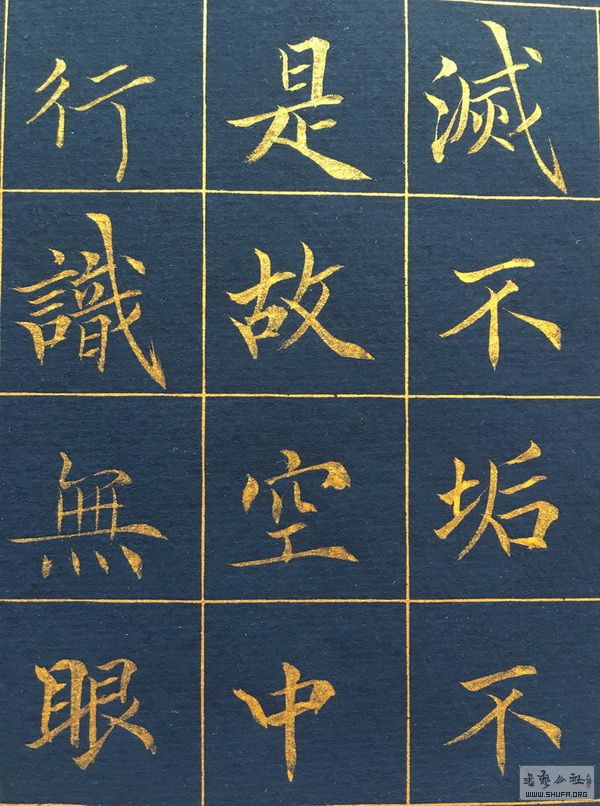 滅不垢不
是故空中
行識無眼
書藝公社
WWW.SHUFA.ORG